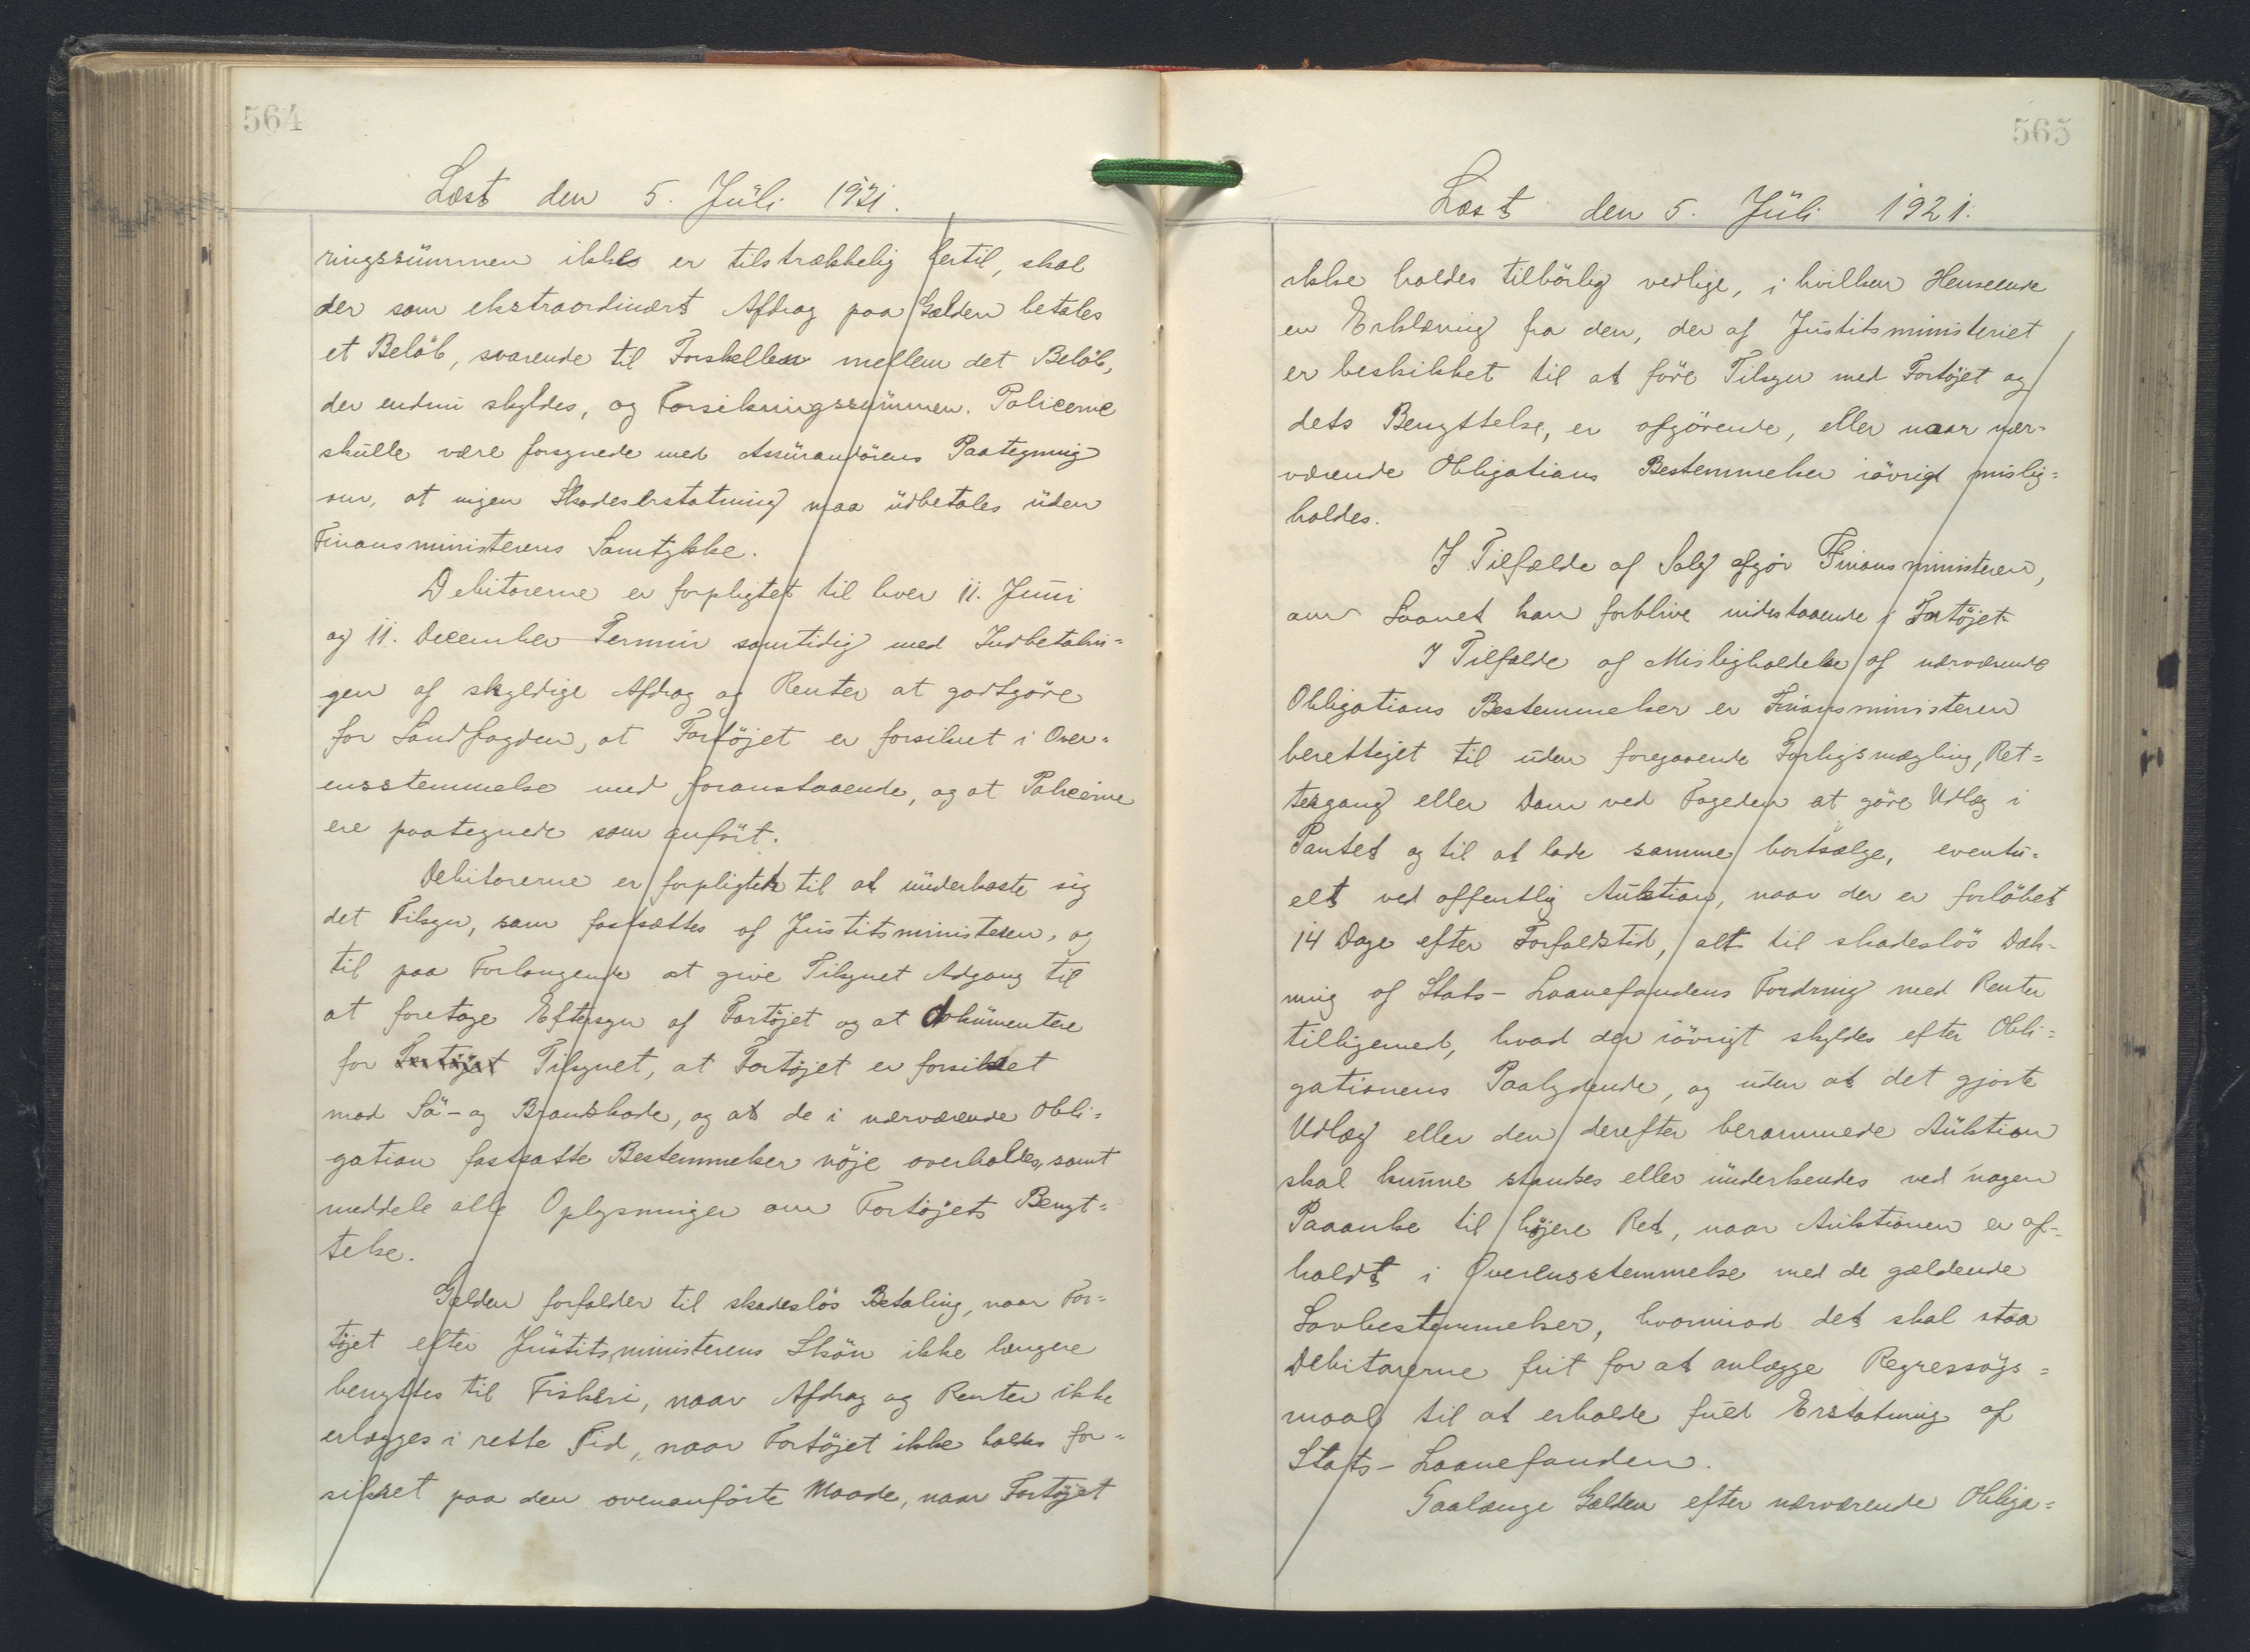 564
Læst den 5. Juli 1921.
ringssummen ikke er tilstrækkelig hertil, skal
der som ekstraordinært Afdrag paa Gælden betales
et Beløb, svarende til Forskellen mellem det Beløb,
der endnu skyldes, og Forsikringssummen. Policerne
skulle være forsynede med Assurandørens Paategning
om, at ingen Skadeserstatning maa udbetales uden
Finansministerens Samtykke.
Debitorerne er forpligtet til hver 11. Juni
og 11. December Termin samtidig med Indbetalin=
gen af skyldige Afdrag og Renter at godtgøre
for Landfogden, at Fartøjet er forsikret i Over=
ensstemmelse med foranstaaende, og at Policerne
ere paategnede som anført.
Debitorerne er forpligtet til at underkaste sig
det Tilsyn, som fastsættes af Justitsministeren, og
til paa Forlangende at give Tilsynet Adgang til
at foretage Eftersyn af Fartøjet og at dokumentere
for Fartøjet Tilsynet, at Fartøjet er forsikret
mod Sø- og Brandskade, og at de i nærværende Obli=
gation fastsatte Bestemmelser nøje overholdes, samt
meddele alle Oplysninger om Fartøjets Benyt=
telse.
Gælden forfalder til skadesløs Betaling, naar Far=
tøjet efter Justitsministerens Skøn ikke længere
benyttes til Fiskeri, naar Afdrag og Renter ikke
erlægges i rette Tid, naar Fartøjet ikke holdes for=
sikret paa den ovenanførte Maade, naar Fartøjet
565
Læst den 5. Juli 1921.
ikke holdes tilbørlig vedlige, i hvilken Henseende
en Erklæring fra den, der af Justitsministeriet
er beskikket til at føre Tilsyn med Fartøjet og
dets Benyttelse, er afgørende, eller naar nær=
værende Obligations Bestemmelser iøvrigt mislig=
holdes.
I Tilfælde af Salg afgør Finansministeren,
om Laanet kan forblive indestaaende i Fartøjet.
I Tilfælde af Misligholdelse af nærværende
Obligations Bestemmelser er Finansministeren
berettiget til uden foregaaende Forligsmægling, Ret=
tergang eller Dom ved Fogeden at gøre Udlæg i
Pantet og til at lade samme bortsælge, eventu=
elt ved offentlig Auktion, naar der er forløbet
14 Dage efter Forfaldstid, alt til skadesløs Dæk=
ning af Stats-Laanefondens Fordring med Renter
tilligemed, hvad der iøvrigt skyldes efter Obli=
gationens Paalydende, og uden at det gjorte
Udlæg eller den derefter berammede Auktion
skal kunne standses eller underkendes ved nogen
Paaanke til højere Ret, naar Auktionen er af=
holdt i Overensstemmelse med de gældende
Lovbestemmelser, hvorimod det skal staa
Debitorerne frit for at anlægge Regressøgs=
maal til at erholde fuld Erstatning af
Stats-Laanefonden.
Saalænge Gælden efter nærværende Obliga=